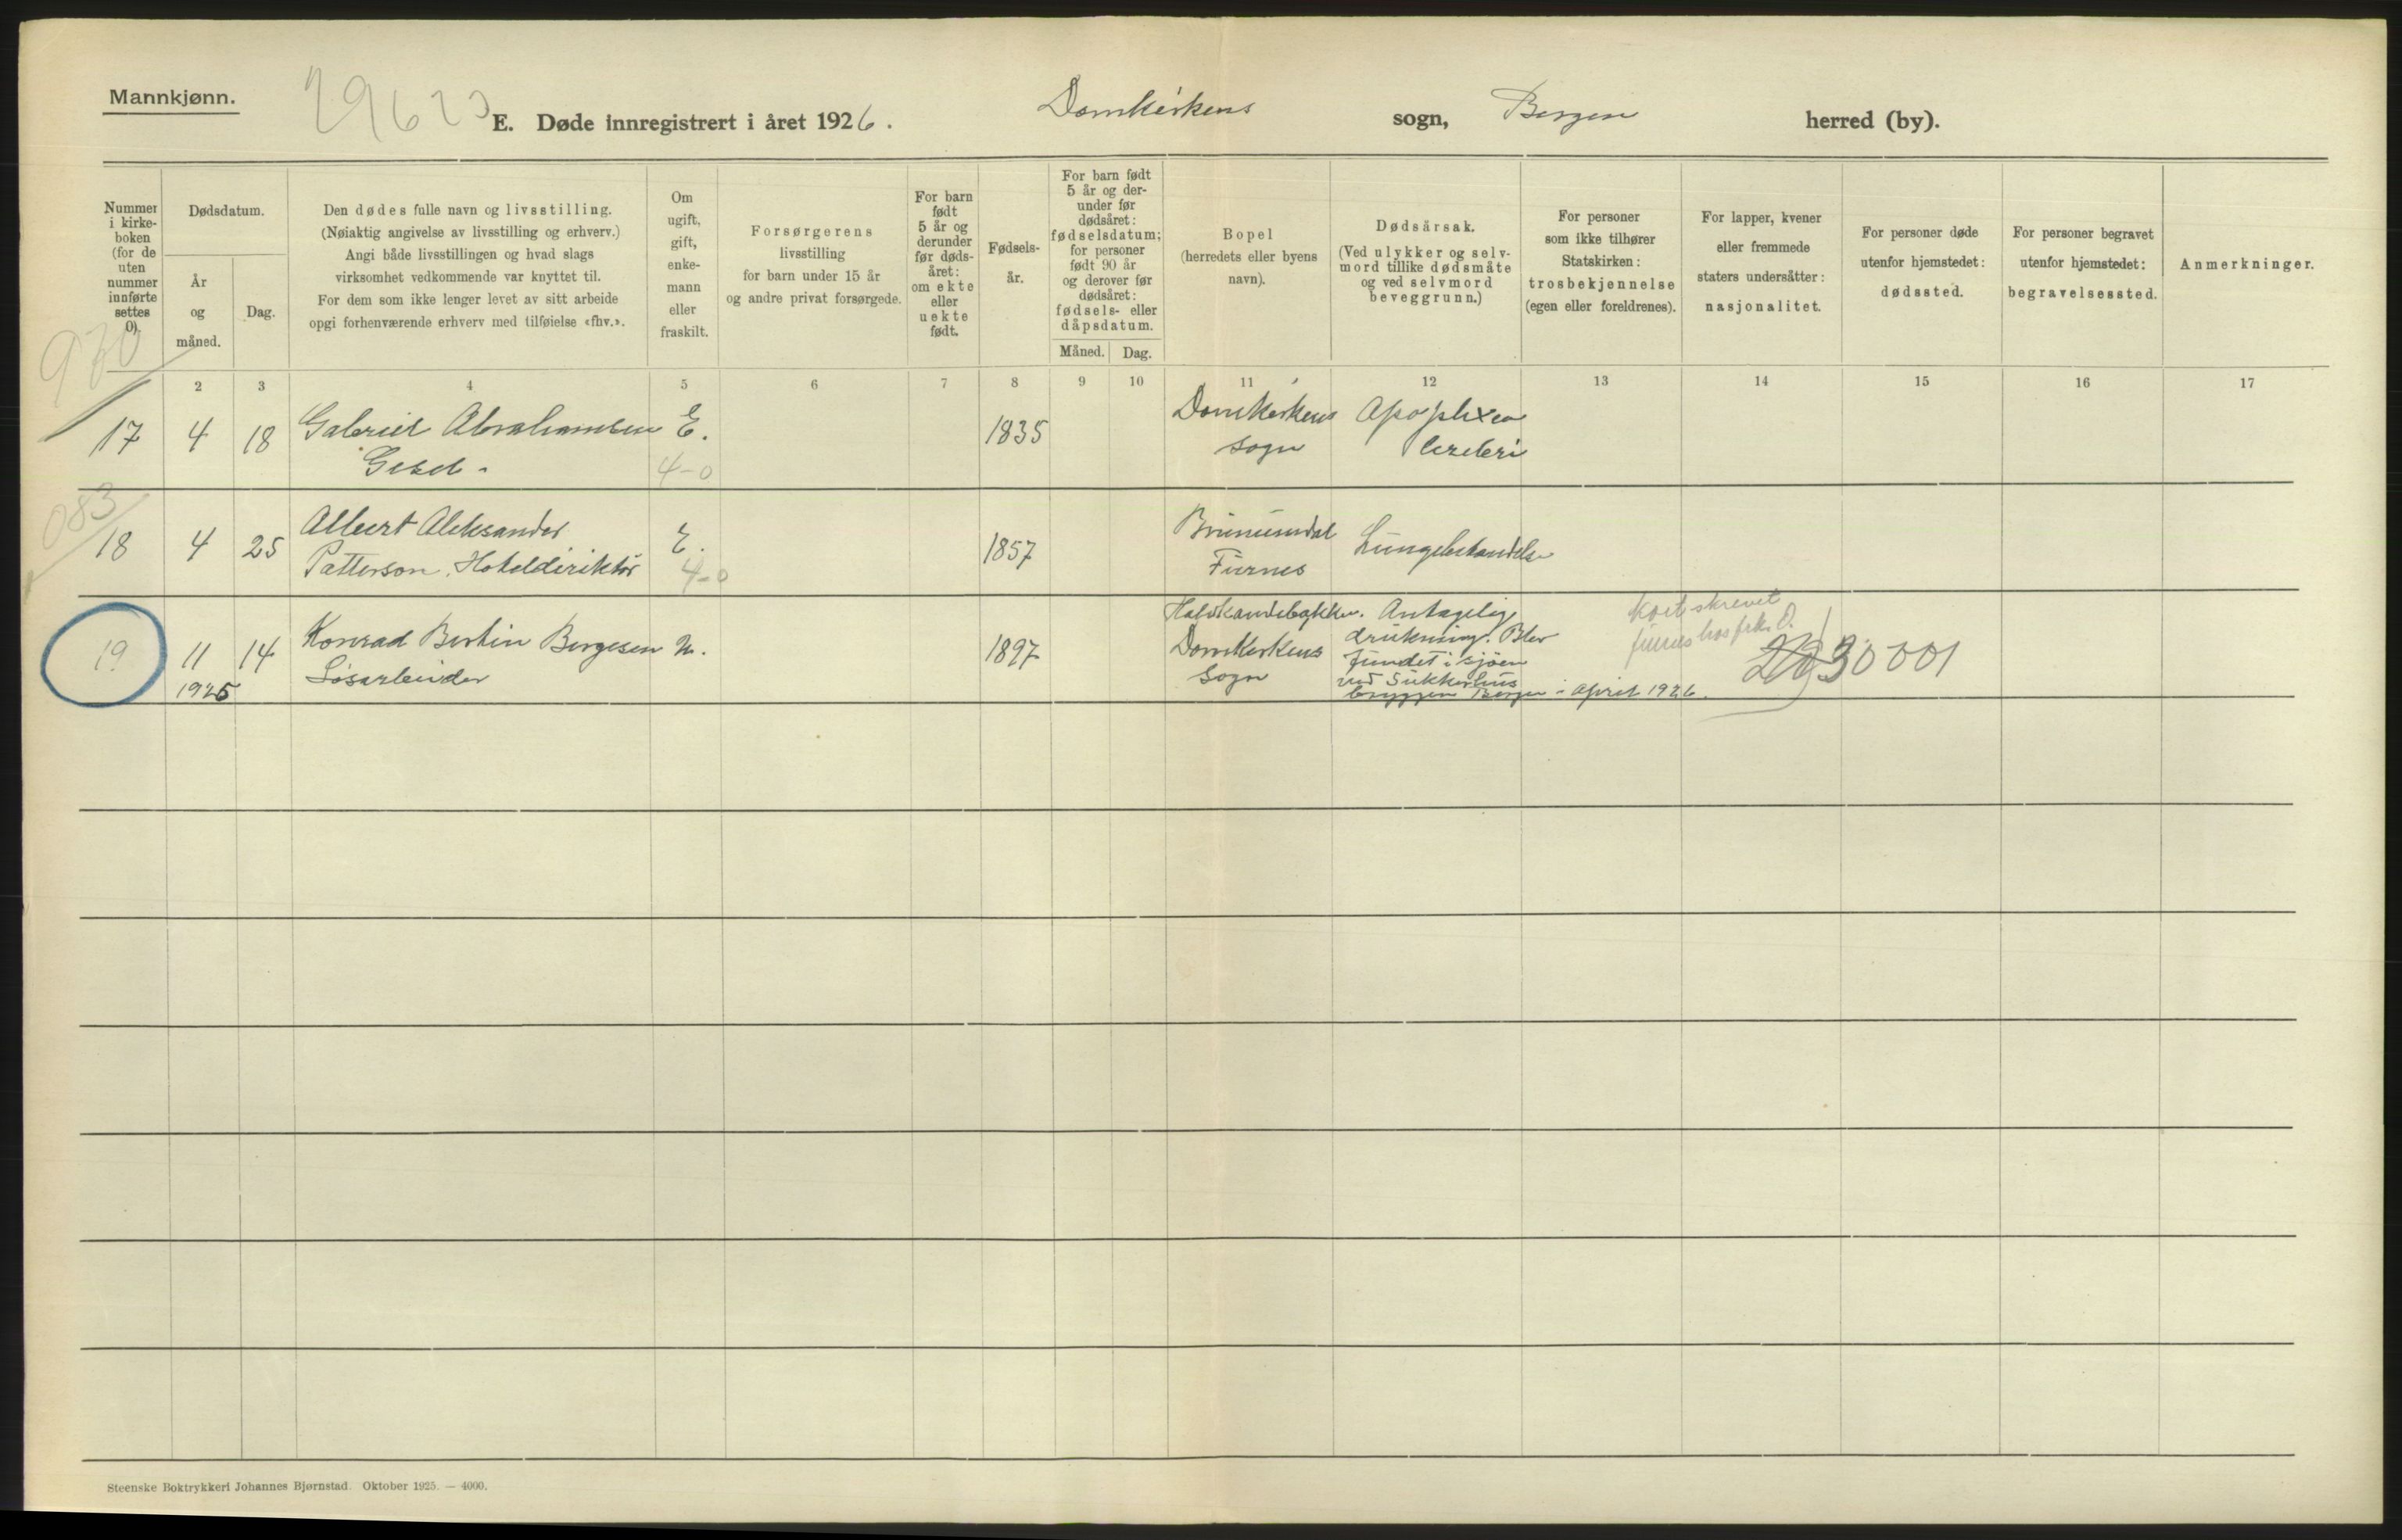 Mannkjønn.
E. Døde innregistrert i året 1926.
Domkirkens sogn, Bergen herred (by).
Nummer i kirke-boken (for de uten nummer innførte settes 0).
Dødsdatum.
År og måned.
Dag.
Den dødes fulle navn og livsstilling.
(Nøiaktig angivelse av livsstilling og erhverv.)
Angi både livsstillingen og hvad slags
virksomhet vedkommende var knyttet til.
For dem som ikke lenger levet av sitt arbeide
opgi forhenværende erhverv med tilføielse «fhv.».
Om
ugift,
gift,
enke-
mann
eller
fraskilt.
Forsørgerens
livsstilling
for barn under 15 år
og andre privat forsørgede.
For barn
født
5 år og
derunder
før døds-
året:
om ekte
eller
uekte
født.
Fødsels-
år.
For barn født
5 år og der-
under før
dødsåret:
fødselsdatum;
for personer
født 90 år
og derover før
dødsåret:
fødsels- eller
dåpsdatum.
Måned. Dag.
Bopel
(herredets eller byens
navn).
Dødsårsak.
(Ved ulykker og selv-
mord tillike dødsmåte
og ved selvmord
beveggrunn.)
For personer
som ikke tilhører
Statskirken:
trosbekjennelse
(egen eller foreldrenes).
For lapper, kvener
eller fremmede
staters undersåtter:
nasjonalitet.
For personer døde
utenfor hjemstedet:
dødssted.
For personer begravet
utenfor hjemstedet:
begravelsessted.
Anmerkninger.
2 3 4 5 6 7 8 9 10 11 12 13 14 15 16 17
17 4 18 Gabriel Abrahamsen E. 1835 Domkirkens Apoplexia
4-0 sogn cerebri
083
18 4 25 Albert Aleksander E. 1857 Brumunddal
Patterson. Hoteldirektør 4-0 Furnes
19 11 14 Konrad Bertin Børgesen U. 1897 Halvkandebakken. Antagelig
1925 Løsarbeider Domkirkens sogn
drukning. Blev
fundet i sjøen
ved Sukkerhus
bryggen Bergen i april 1926.
kort skrevet
30001
Steenske Boktrykkeri Johannes Bjørnstad. Oktober 1925. — 4000.